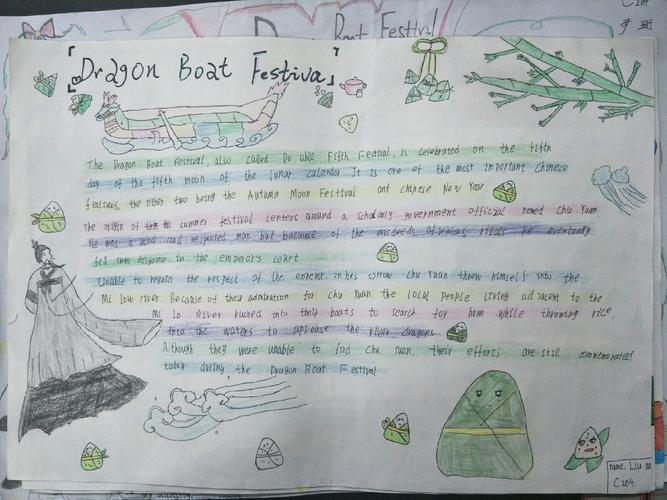 Boat Festival
C204
「Dragon Boat Festival」
The Dragon Boat Festival, also called Double Fifth Festival, is celebrated on the fifth
day of the fifth moon of the lunar calendar. It is one of the most important Chinese
festivals, the other two being the Autumn Moon Festival and Chinese New Year.
The origin of this summer festival centers around a scholarly government official named Chu Yuan.
He was a good and respected man, but because of the misdeeds of jealous rivals he eventually
fell into disfavor in the emperor's court.
Unable to regain the respect of the emperor, in his sorrow Chu Yuan threw himself into the
Mi Low river Because of their admiration for Chu Yuan, the local people living adjacent to the
Mi Lo River rushed into their boats to search for him while throwing rice
into the waters to appease the river dragons.
Although they were unable to find Chu Yuan, their efforts are still commemorated
today during the Dragon Boat Festival
name: Liu
C204.